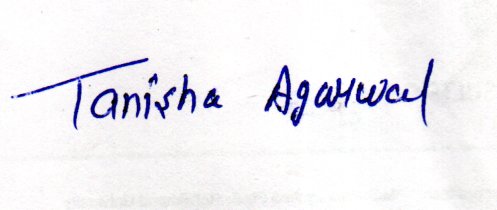 Tanisha Agarwal